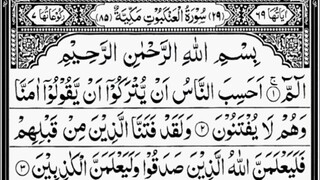 اٰیاتُهَا ٦٩ (٢٩) سُوْرَةُ الْعَنْكَبُوْتِ مَكِّیَّةٌ (٨٥) رُكُوْعَاتُهَا ٧
بِسْمِ اللّٰهِ الرَّحْمٰنِ الرَّحِیْمِ
الٓمّٓ ۚ﴿١﴾ اَحَسِبَ النَّاسُ اَنْ یُّتْرَكُوْۤا اَنْ یَّقُوْلُوْۤا اٰمَنَّا
وَهُمْ لَا یُفْتَنُوْنَ ﴿٢﴾ وَلَقَدْ فَتَنَّا الَّذِیْنَ مِنْ قَبْلِهِمْ
فَلَیَعْلَمَنَّ اللّٰهُ الَّذِیْنَ صَدَقُوْا وَلَیَعْلَمَنَّ الْكٰذِبِیْنَ ﴿٣﴾